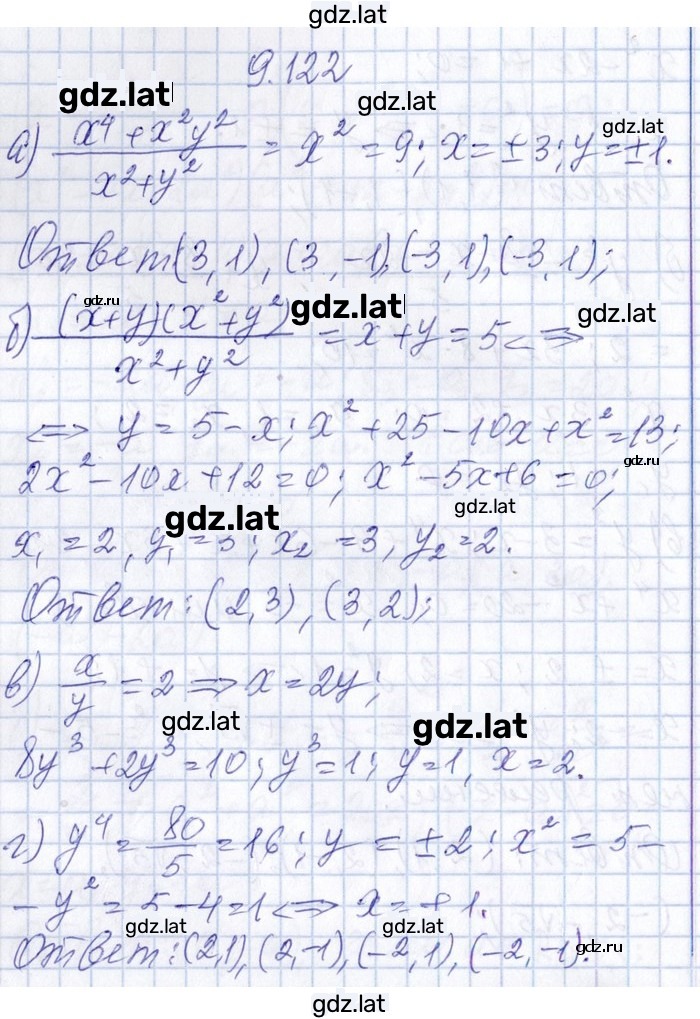 gdz.lat
9.122
gdz.lat
gdz.lat
gdz.lat
а) (x⁴ + x²y²)/(x² + y²) = x² = 9; x = ±3; y = ±1.
Ответ (3, 1), (3, -1), (-3, 1), (-3, 1);
gdz.ru
gdz.lat
gdz.lat
б) (x+y)(x²+y²)/(x²+y²) = x + y = 5 <=>
<=> y = 5 - x; x² + 25 - 10x + x² = 13;
gdz.ru
2x² - 10x + 12 = 0; x² - 5x + 6 = 0;
gdz.lat
gdz.lat
x₁ = 2, y₁ = 3; x₂ = 3, y₂ = 2.
Ответ: (2, 3), (3, 2);
в) x/y = 2 => x = 2y;
gdz.lat
gdz.lat
8y³ + 2y³ = 10; y³ = 1; y = 1, x = 2.
г) y⁴ = 80/5 = 16; y = ±2; x² = 5 -
- y² = 5 - 4 = 1 <=> x = ±1.
gdz.lat
gdz.lat
gdz.ru
Ответ: (2, 1), (2, -1), (-2, 1), (-2, -1).
gdz.lat